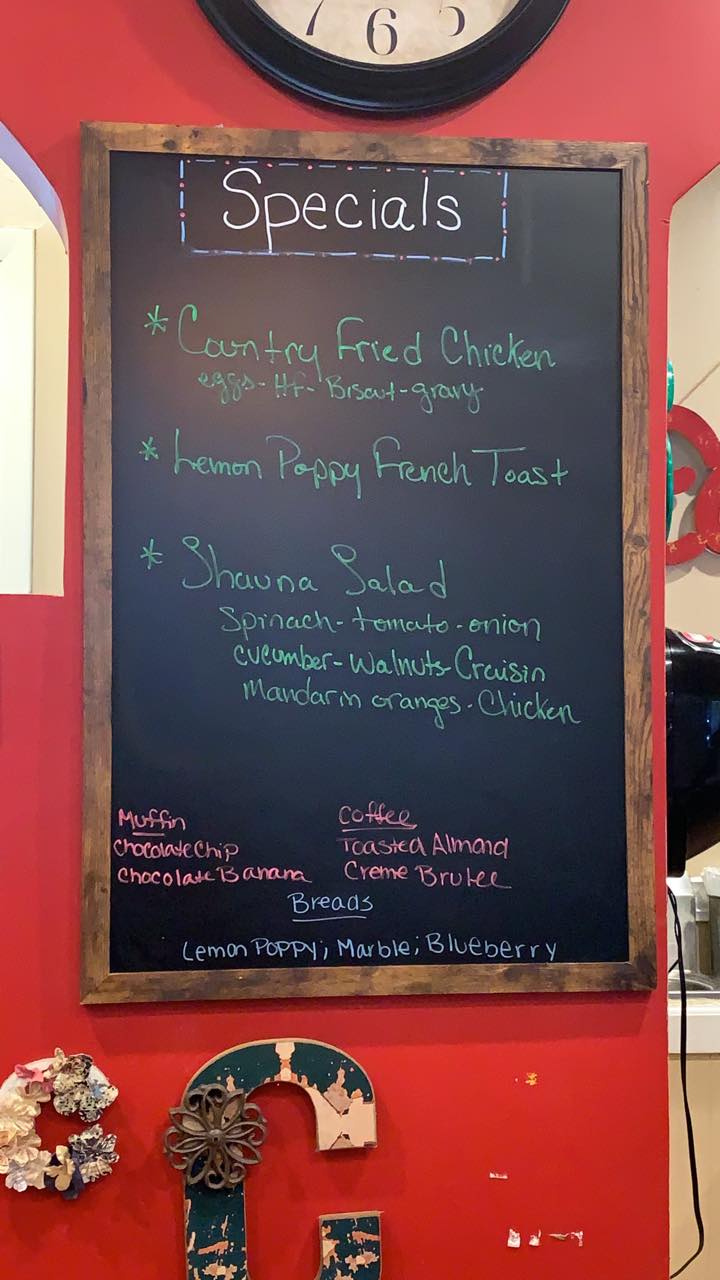 7 6 5
Specials
* Country Fried Chicken
eggs - Hf - Biscut - gravy
* Lemon Poppy French Toast
* Shauna Salad
Spinach - tomato - onion
cucumber - walnuts - Craisin
Mandarin oranges - Chicken
Muffin
Chocolate Chip
Chocolate Banana
Coffee
Toasted Almond
Creme Brulee
Breads
Lemon Poppy; Marble; Blueberry